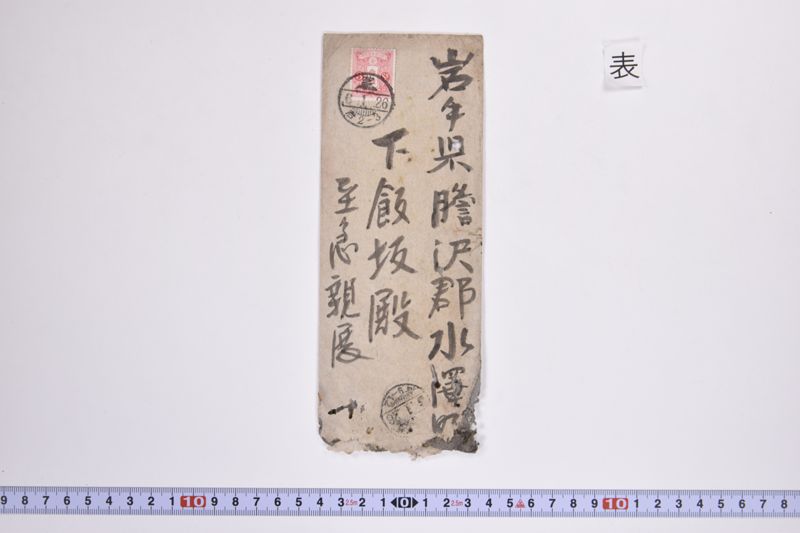 表
岩手県膽沢郡水澤町
下飯坂殿
至急親展
6.1.26
后2-3
9 8 7 6 5 4 3 2 1 10 9 8 7 6 5 4 3 2.5m 2 1 0 1 2 2.5m 3 4 5 6 7 8 9 10 1 2 3 4 5 6 7 8